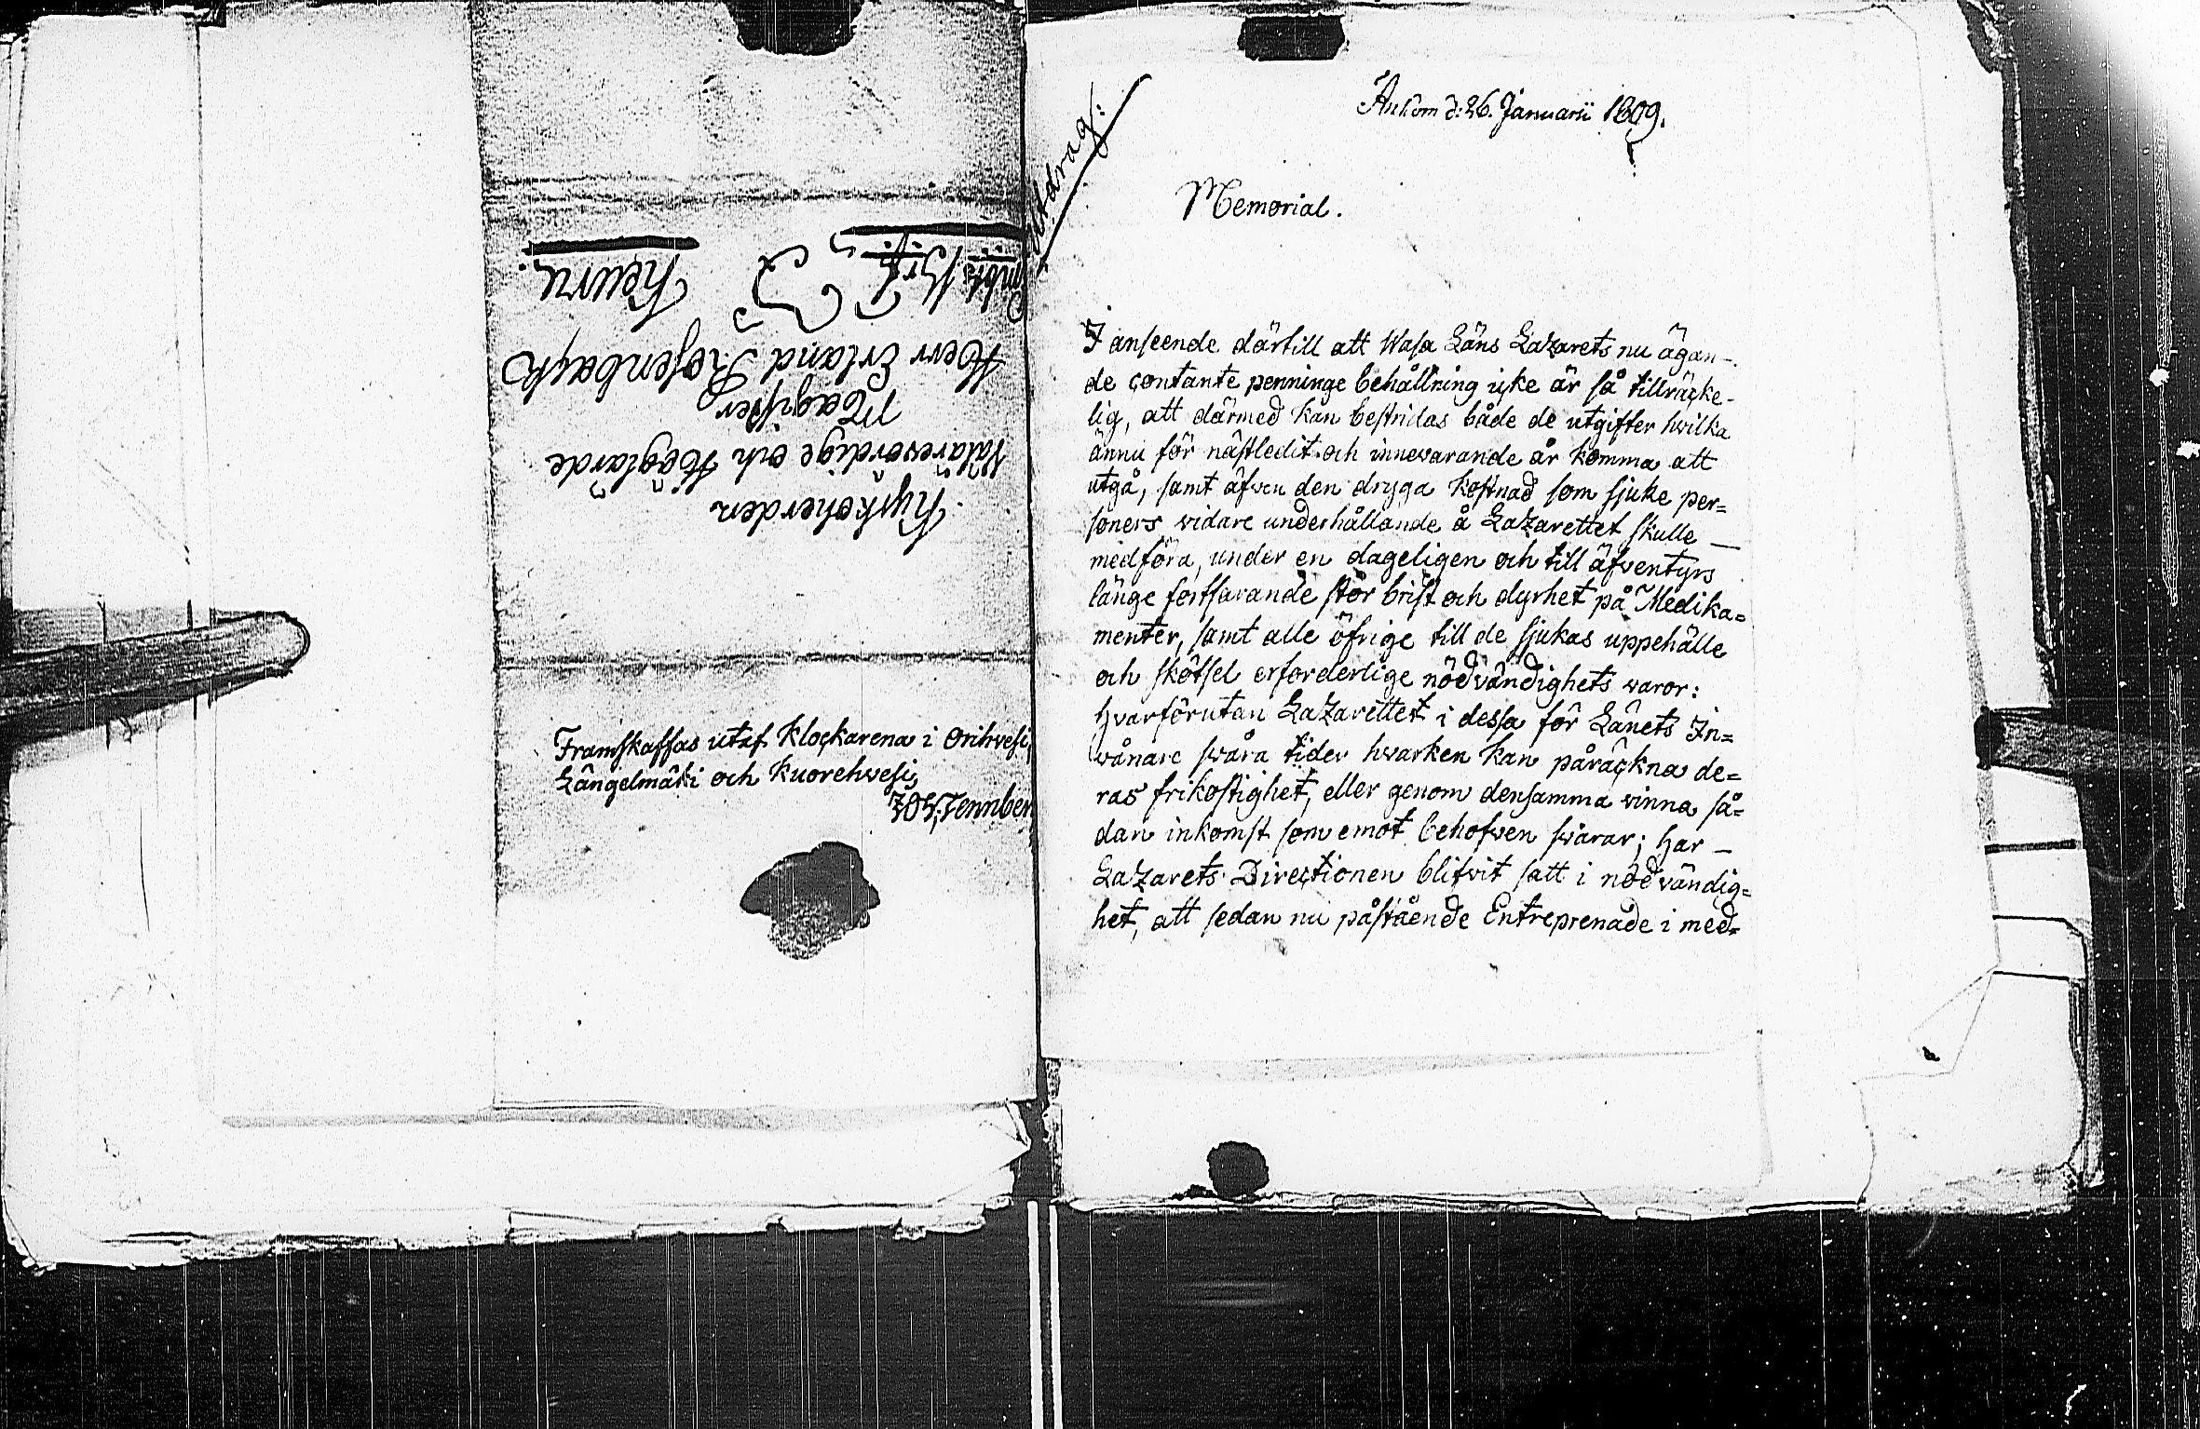 Kyrkoherden
Välärevördige och Höglärde
Magister
Herr Erland Rosenback
Embts Brf. Keuru.
Framskaffas utaf Klockarena i Orihvesi,
Längelmäki och Kuorehvesi,
Utdrag:
Ankom d: 26. Januarii 1809.
Memorial.
I anseende därtill att Wasa Läns Lazarets nu ägan-
de contante penninge behållning icke är så tillräcke-
lig, att därmed kan bestridas både de utgifter hvilka
ännu för nästledit och innevarande år komma att
utgå, samt äfven den dryga kostnad som sjuke per=
soners vidare underhållande å Lazarettet skulle —
medföra, under en dageligen och till äfventyrs
länge fortfarande stor brist och dyrhet på Medika=
menter, samt alle öfrige till de sjukas uppehälle
och skötsel erforderlige nödvändighets varor:
hvarförutan Lazarettet i dessa för Länets In=
vånare svåra tider hvarken kan påräckna de=
ras frikostighet, eller genom densamma vinna så=
dan inkomst som emot behofven svarar; har —
Lazarets Directionen blifvit satt i nödvändig=
het, att sedan nu påstående Entreprenade i med=